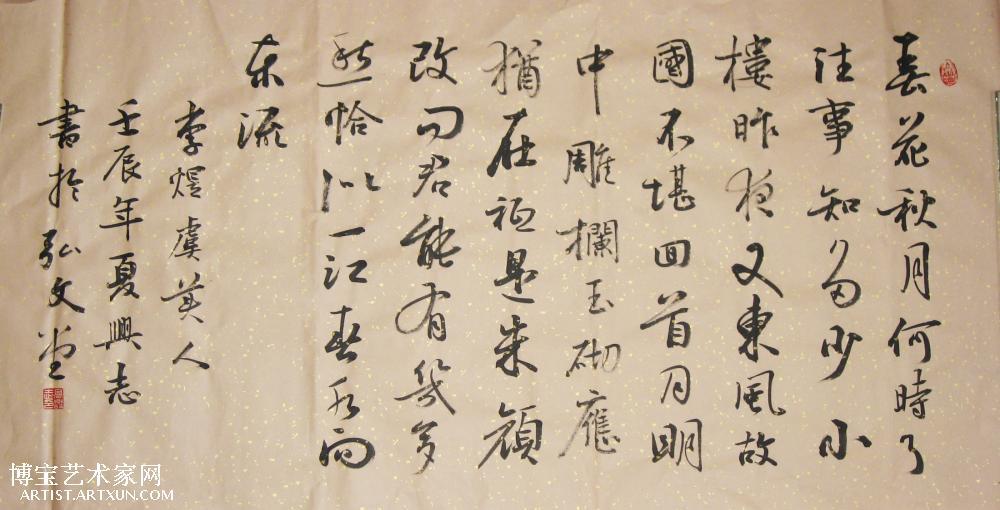 春花秋月何時了
往事知多少小
樓昨夜又東風故
國不堪回首月明
中雕欄玉砌應
猶在祗是朱顏
改問君能有幾多
愁恰似一江春水向
東流
李煜虞美人
壬辰年夏興志
書於弘文堂
博宝艺术家网
ARTIST.ARTXUN.COM